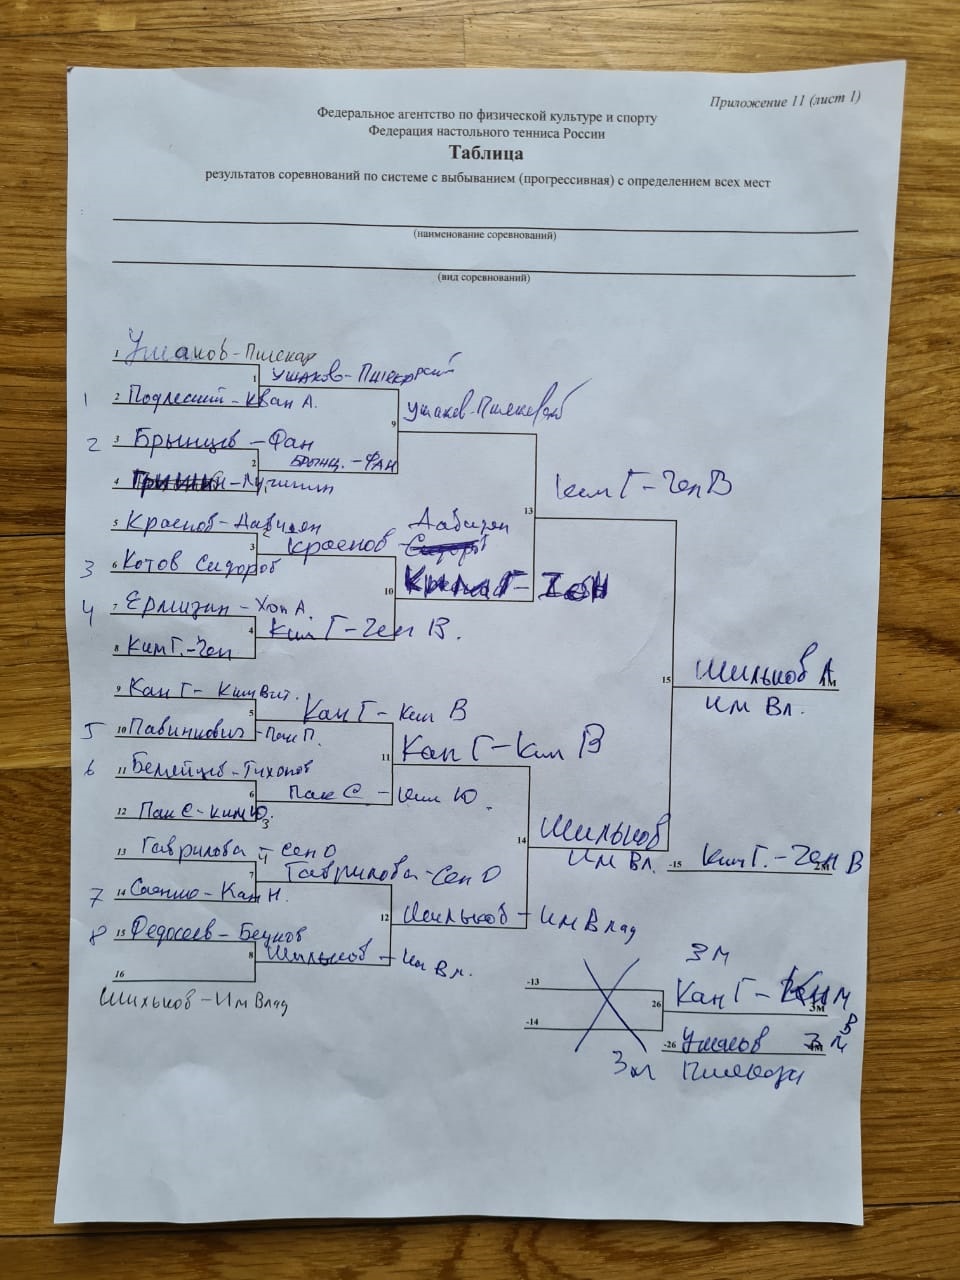 Приложение 11 (лист 1)
Федеральное агентство по физической культуре и спорту
Федерация настольного тенниса России
Таблица
результатов соревнований по системе с выбыванием (прогрессивная) с определением всех мест
(наименование соревнований)
(вид соревнований)
1 Ушаков-Пшекар
1 Ушаков-
1 2 Подлесный-Кван А.
9 Ушаков-
2 3 Брынцев-Фан
2 Брынц.-Фан
4
13 Ким Г-Чен В
5 Краснов-Давидян
3 Краснов - Давидян
3 6 Котов Сидоров
10
4 7 Ермизин-Хон А.
4 Ким Г-Чен В.
8 Ким Г.-Чен
15 Шильков А 1м
Им Вл.
9 Кан Г-Ким Вит.
5 Кан Г-Ким В
5 10 Павинкович-Пак П.
11 Кан Г-Ким В
6 11 Белейцев-Тихонов
6 Пак С-Ким Ю.
12 Пак С-Ким Ю.
3
14 Шильков
Им Вл.
13 Гаврилова-Сен О
4
7 Гаврилова-Сен О
-15 Ким Г.-Чен В 2м
7 14 -Кан Н.
12 Шильков-Им Влад
8 15 Федосеев-Бецков
8 Шильков-Им Вл.
16
Шильков-Им Влад
3 м
-13
26 Кан Г- 3м
-14
-26 Ушаков
3м